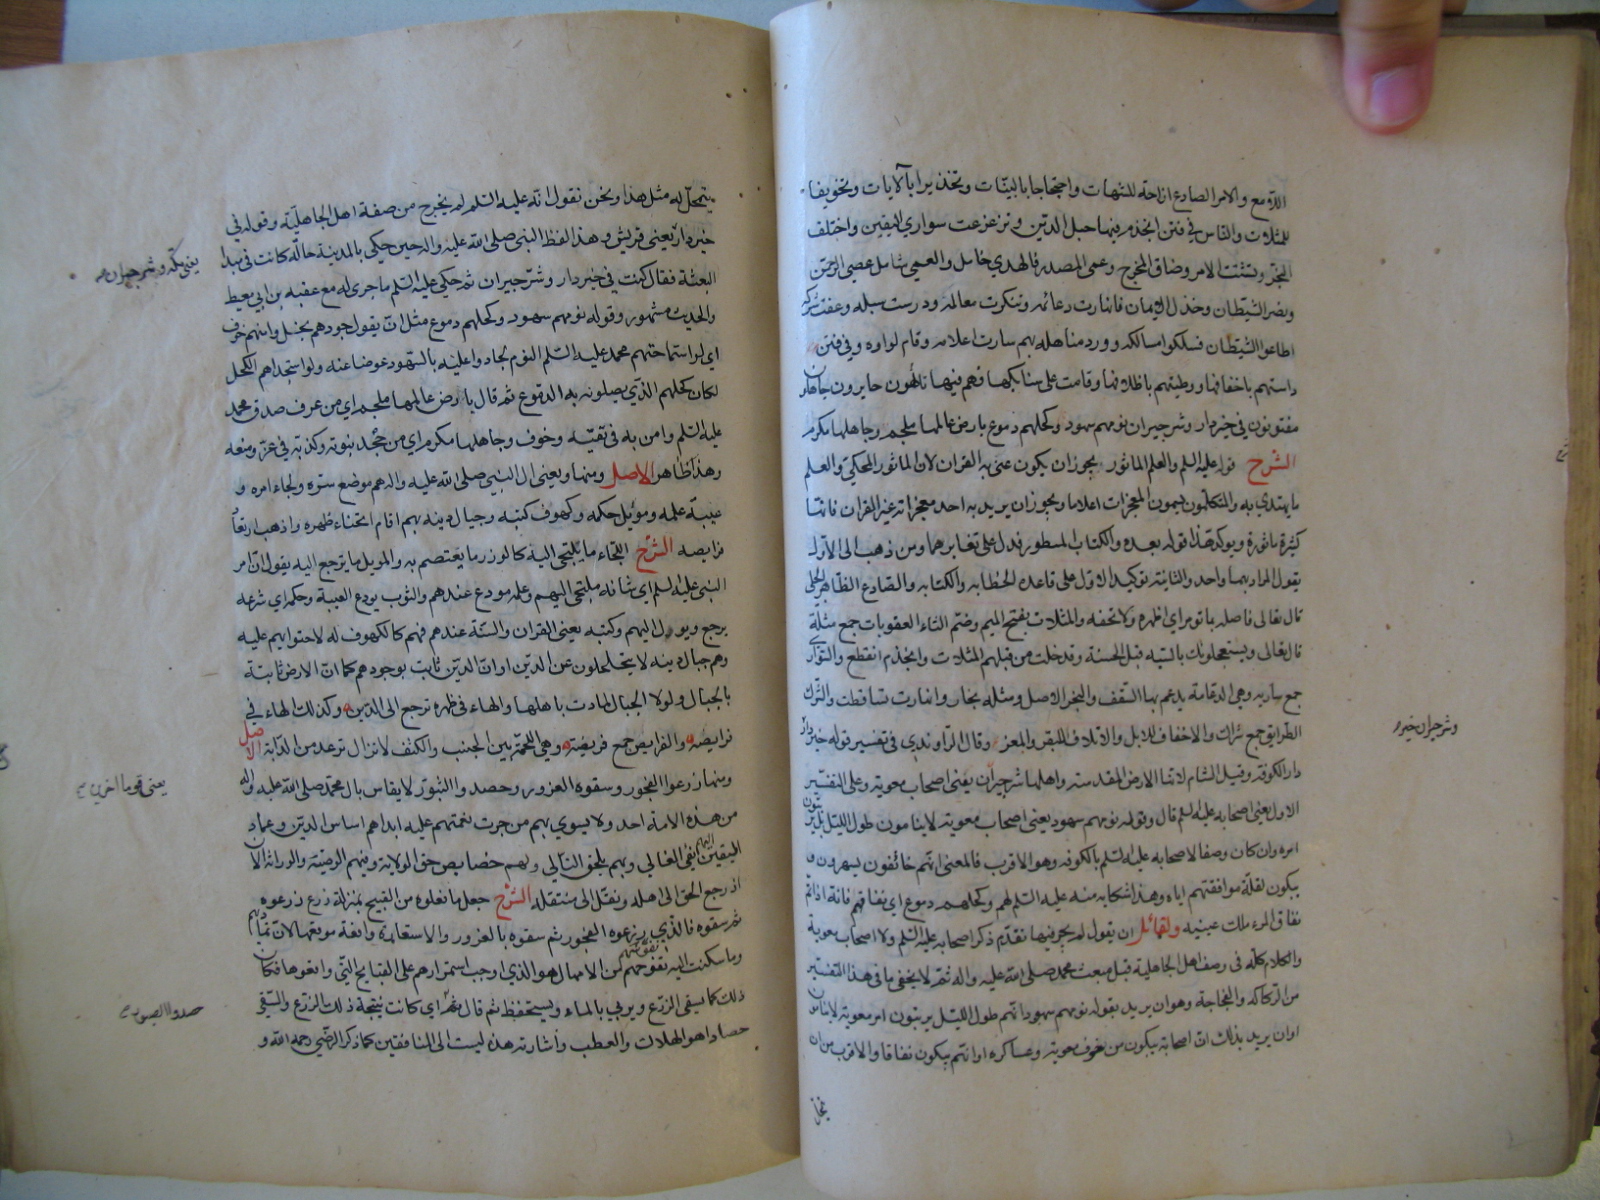 اللامع والامر الصادع ازاحة للشبهات واحتجاجا بالبينات وتحذيرا بالآيات وتخويفا
للمثلات والناس في فتن انجذم فيها حبل الدين وتزعزعت سواري اليقين واختلف
النجر وتشتت الامر وضاق المخرج وعمى المصدر فالهدي خامل والعمي شامل عصي الرحمن
ونصر الشيطان وخذل الايمان فانهارت دعائمه وتنكرت معالمه ودرست سبله وعفت شركه
اطاعوا الشيطان فسلكوا مسالكه ووردوا مناهله بهم سارت اعلامه وقام لواوه في فتن
داستهم باخفافها ووطئتهم باظلافها وقامت على سنابكها فهم فيها تائهون حايرون جاهلون
مفتونون في خير دار وشر جيران نومهم سهود وكحلهم دموع بارض عالمها ملجم وجاهلها مكرم
الشرح قوله عليه السلم والعلم الماثور يجوز ان يكون عنى به القران لان الماثور المحكي والعلم
ما يهتدي به والمتكلمون يسمون المعجزات اعلاما ويجوز ان يريد به احد معجزاته غير القران فانها
كثيرة ماثورة ويوكد هذا قوله بعده والكتاب المسطور فدل على تغايرهما ومن ذهب الى الاول
يقول المراد بهما واحد والثانية توكيد الاول على قاعدة الخطابه والكتابه والصادع الظاهر الجلي
قال تعالى فاصدع بما تومر اي اظهره ولا تخفه والمثلات بفتح الميم وضم الثاء العقوبات جمع مثلة
قال تعالى ويستعجلونك بالسيئه قبل الحسنة وقد خلت من قبلهم المثلات وانجذم انقطع والسواري
جمع ساريه وهي الدعامة يدعم بها السقف والنجر الاصل ومثله نجار وانهارت تساقطت والشرك
الطرايق جمع شراك والاخفاف للابل والاظلاف للبقر والمعز وقال الراوندي في تفسير قوله خير دار
دار الكوفة وقيل الشام لانها الارض المقدسة واهلها شر جيران يعنى اصحاب معوية وعلى التفسير
الاول يعنى اصحابه عليه السلم قال وقوله نومهم سهود يعنى اصحاب معوية لا ينامون طول الليل بل يرتبون
امره وان كان وصفا لاصحابه عليه السلم بالكوفه وهو الاقرب فالمعنى انهم خائفون يسهرون و
يبكون لقلة موافقتهم اياه وهذا شكايه منه عليه السلم لهم وكحلهم دموع اي نفاقهم فانه اذا تم
نفاق المرء ملك عينيه ولقائل ان يقول لم يجر فيها تقدم ذكر اصحابه عليه السلم ولا اصحاب معوية
والكلام كله في وصف اهل الجاهلية قبل مبعث محمد صلى الله عليه واله ثم لا يخفى ما في هذا التفسير
من الركاكة والفجاجة وهو ان يريد بقوله نومهم سهود انهم طول الليل يرتبون امر معوية لا ينامون
وان يريد بذلك ان اصحابه يبكون من خوف معوية وعساكره او انهم يبكون نفاقا والاقرب من ان
وشر جيران خبره
يتمحل له مثل هذا ونحن نقول انه عليه السلم لم يخرج من صفة اهل الجاهلية وقوله في
خير دار يعنى قريش وهذا لفظ النبى صلى الله عليه واله حين حكى بالمدينة حاله كانت في مبدا
البعثة فقال كنت في خير دار وشر جيران ثم حكى عليه السلم ما جرى له مع عقبه بن ابي معيط
والحديث مشهور وقوله نومهم سهود وكحلهم دموع مثل ان يقول جودهم بخل وامنهم خوف
اي لو استماحتهم محمد عليه السلم النوم لجادوا عليه بالسهود عوضا عنه ولو استجداهم الكحل
لكان كحلهم الذي يصلونه به الدموع ثم قال بارض عالمها ملجم اي من عرف صدق محمد
عليه السلم وامن به في تقيه وخوف وجاهلها مكرم اي من جحد بنوته وكذبه في عز ومنعه
وهذا ظاهر الاصل ومنها ويعنى ال النبي صلى الله عليه واله هم موضع سره ولجاء امره و
عيبة علمه وموئل حكمه وكهوف كتبه وجبال دينه بهم اقام انحناء ظهره واذهب ارتعاد
فرايصه الشرح اللجاء ما يلتجى اليه كالوزر ما يعتصم به والمويل ما يرجع اليه يقول ان امر
النبى عليه السلم اي شانه ملتجى اليهم وعلمه مودع عندهم والثوب يودع العيبة وحكمه اي شرعه
يرجع ويوول اليهم وكتبه يعنى القران والسنة عندهم فهم كالكهوف له لاحتوايهم عليه
وهم جبال دينه لا يتحلحلون عن الدين او ان الدين ثابت بوجودهم كما ان الارض ثابتة
بالجبال ولولا الجبال لمادت باهلها والهاء في ظهره ترجع الى الدين وكذلك الهاء في
فرايصه والفرايص جمع فريصة وهي اللحمة بين الجنب والكتف لا تزال ترعد من الدابة الاصل
ومنها زرعوا الفجور وسقوه الغرور وحصدوا الثبور لا يقاس بال محمد صلى الله عليه واله
من هذه الامة احد ولا يسوي بهم من جرت نعمتهم عليه ابدا هم اساس الدين وعماد
اليقين اليهم يفئ الغالي وبهم يلحق التالي ولهم خصايص حق الولاية وفيهم الوصية والوراثة الآن
اذ رجع الحق الى اهله ونقل الى منتقله الشرح جعل ما فعلوه من القبيح بمنزلة زرع زرعوه
ثم سقوه فالذي زرعوه الفجور ثم سقوه بالغرور والاستعارة واقعة موقعها لان تماديهم
وما سكنت اليه نفوسهم من الامهال هو الذي اوجب استمرارهم على القبايح التي واقعوها فكان
ذلك كما يسقى الزرع ويربي بالماء ويستحفظ ثم قال ثمر اي كانت نتيجة ذلك الزرع والسقى
حصادا هو الهلاك والعطب واشارته هذه ليست الى المنافقين كما ذكر الرضي رحمه الله و
يعنى مكة وشر جيران
يعنى قوما آخرين
حصدوا الثبور